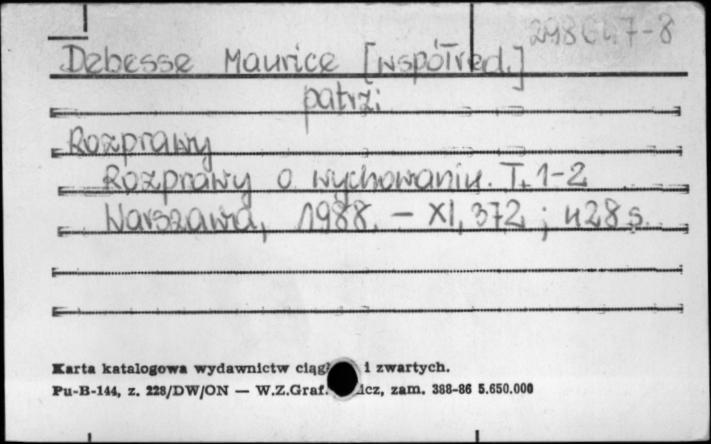 298647-8
Debesse Maurice [współred.]
patrz:
Rozprawy
Rozprawy o wychowaniu. T. 1-2
Warszawa, 1988. – XI, 372 ; 428 s.
Karta katalogowa wydawnictw i zwartych.
Pu-B-144, z. 228/DW/ON — W.Z.Graf. zam. 388-86 5.650.000